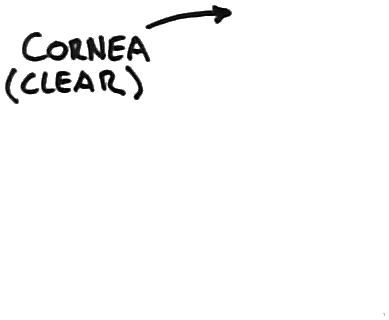 CORNEA
(CLEAR)